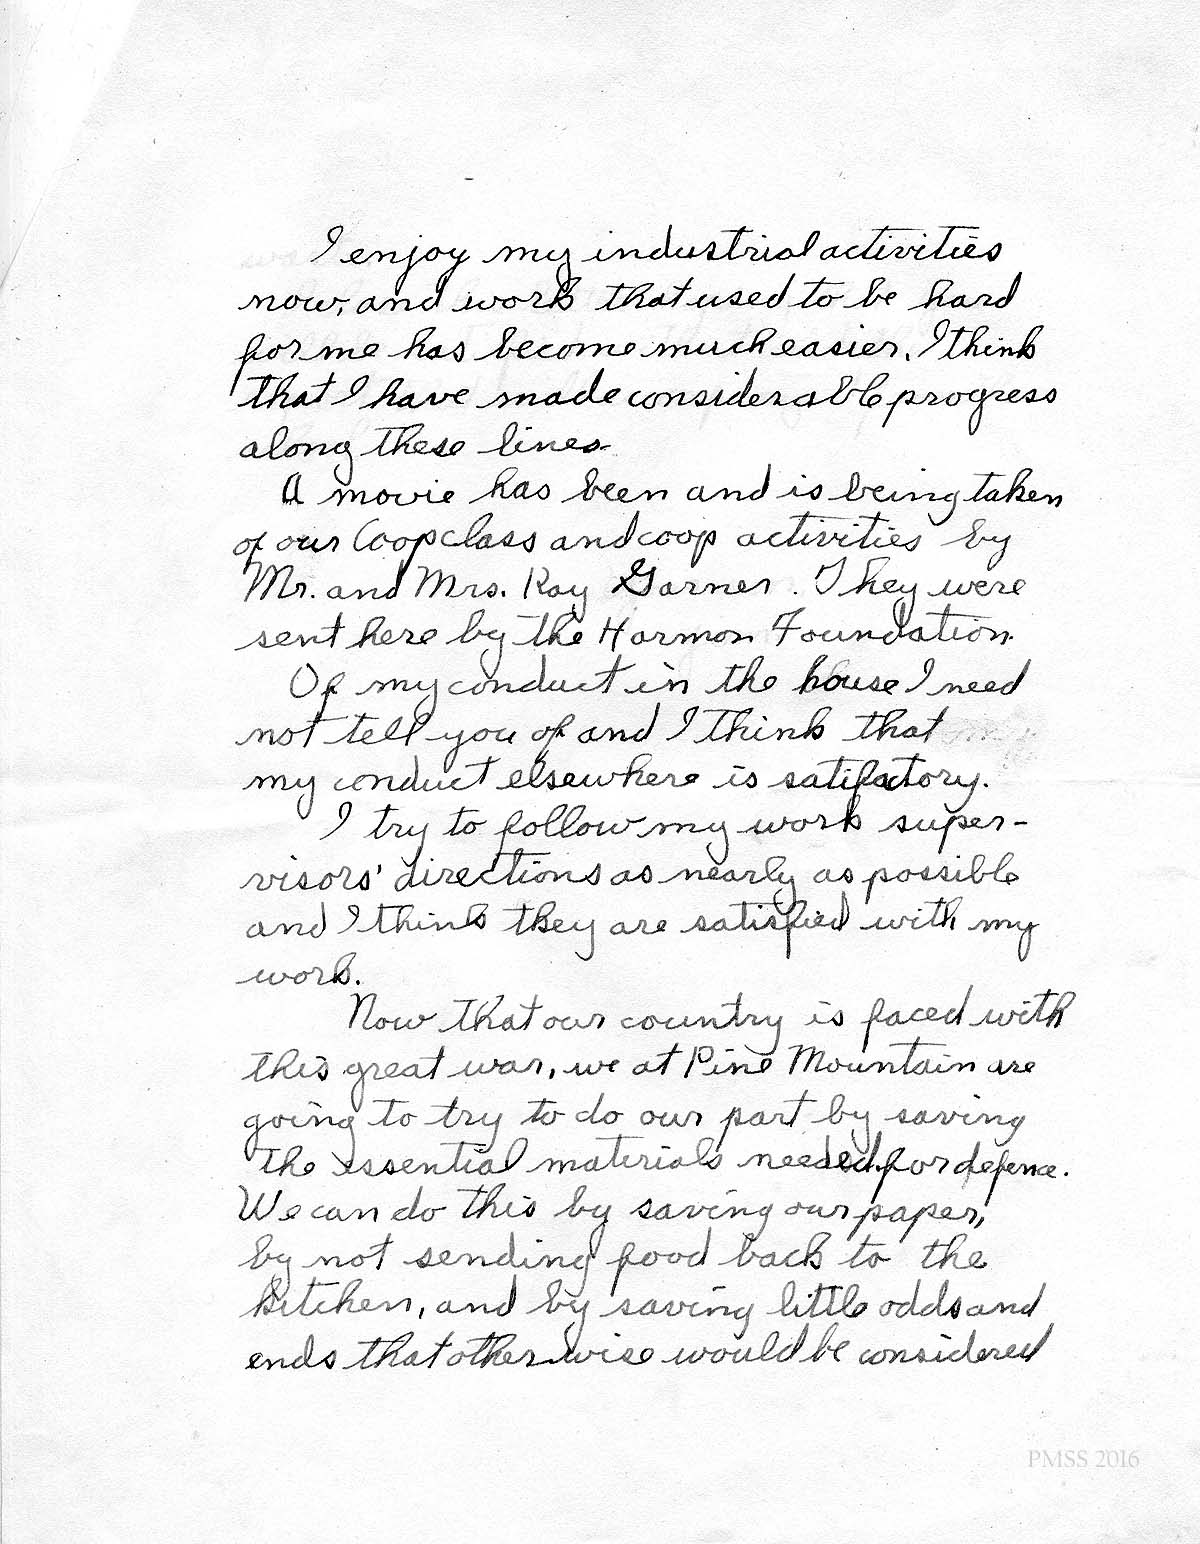 I enjoy my industrial activities
now, and work that used to be hard
for me has become much easier. I think
that I have made considerable progress
along these lines.
A movie has been and is being taken
of our Coop class and coop activities by
Mr. and Mrs. Ray Garner. They were
sent here by the Harmon Foundation.
Of my conduct in the house I need
not tell you of and I think that
my conduct elsewhere is satifactory.
I try to follow my work super-
visors' directions as nearly as possible
and I think they are satisfied with my
work.
Now that our country is faced with
this great war, we at Pine Mountain are
going to try to do our part by saving
the essential materials needed for defence.
We can do this by saving our paper,
by not sending food back to the
kitchen, and by saving little odds and
ends that otherwise would be considered
PMSS 2016